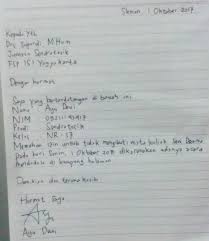 Sleman, 1 Oktober 2017
Kepada Yth.
Drs. Supardi, M.Hum
Jurusan Sendratasik
FSP ISI Yogyakarta
Dengan hormat
Saya yang bertandatangan di bawah ini
Nama Ayu Dewi
NIM
Prodi Sendratasik
Kelas
Memohon izin untuk tidak mengikuti mata kuliah Seni Drama
Pada hari Senin, 1 Oktober 2017 dikarenakan adanya acara
di kampung halaman
Demikian dan terima kasih
Hormat Saya
Ayu Dewi